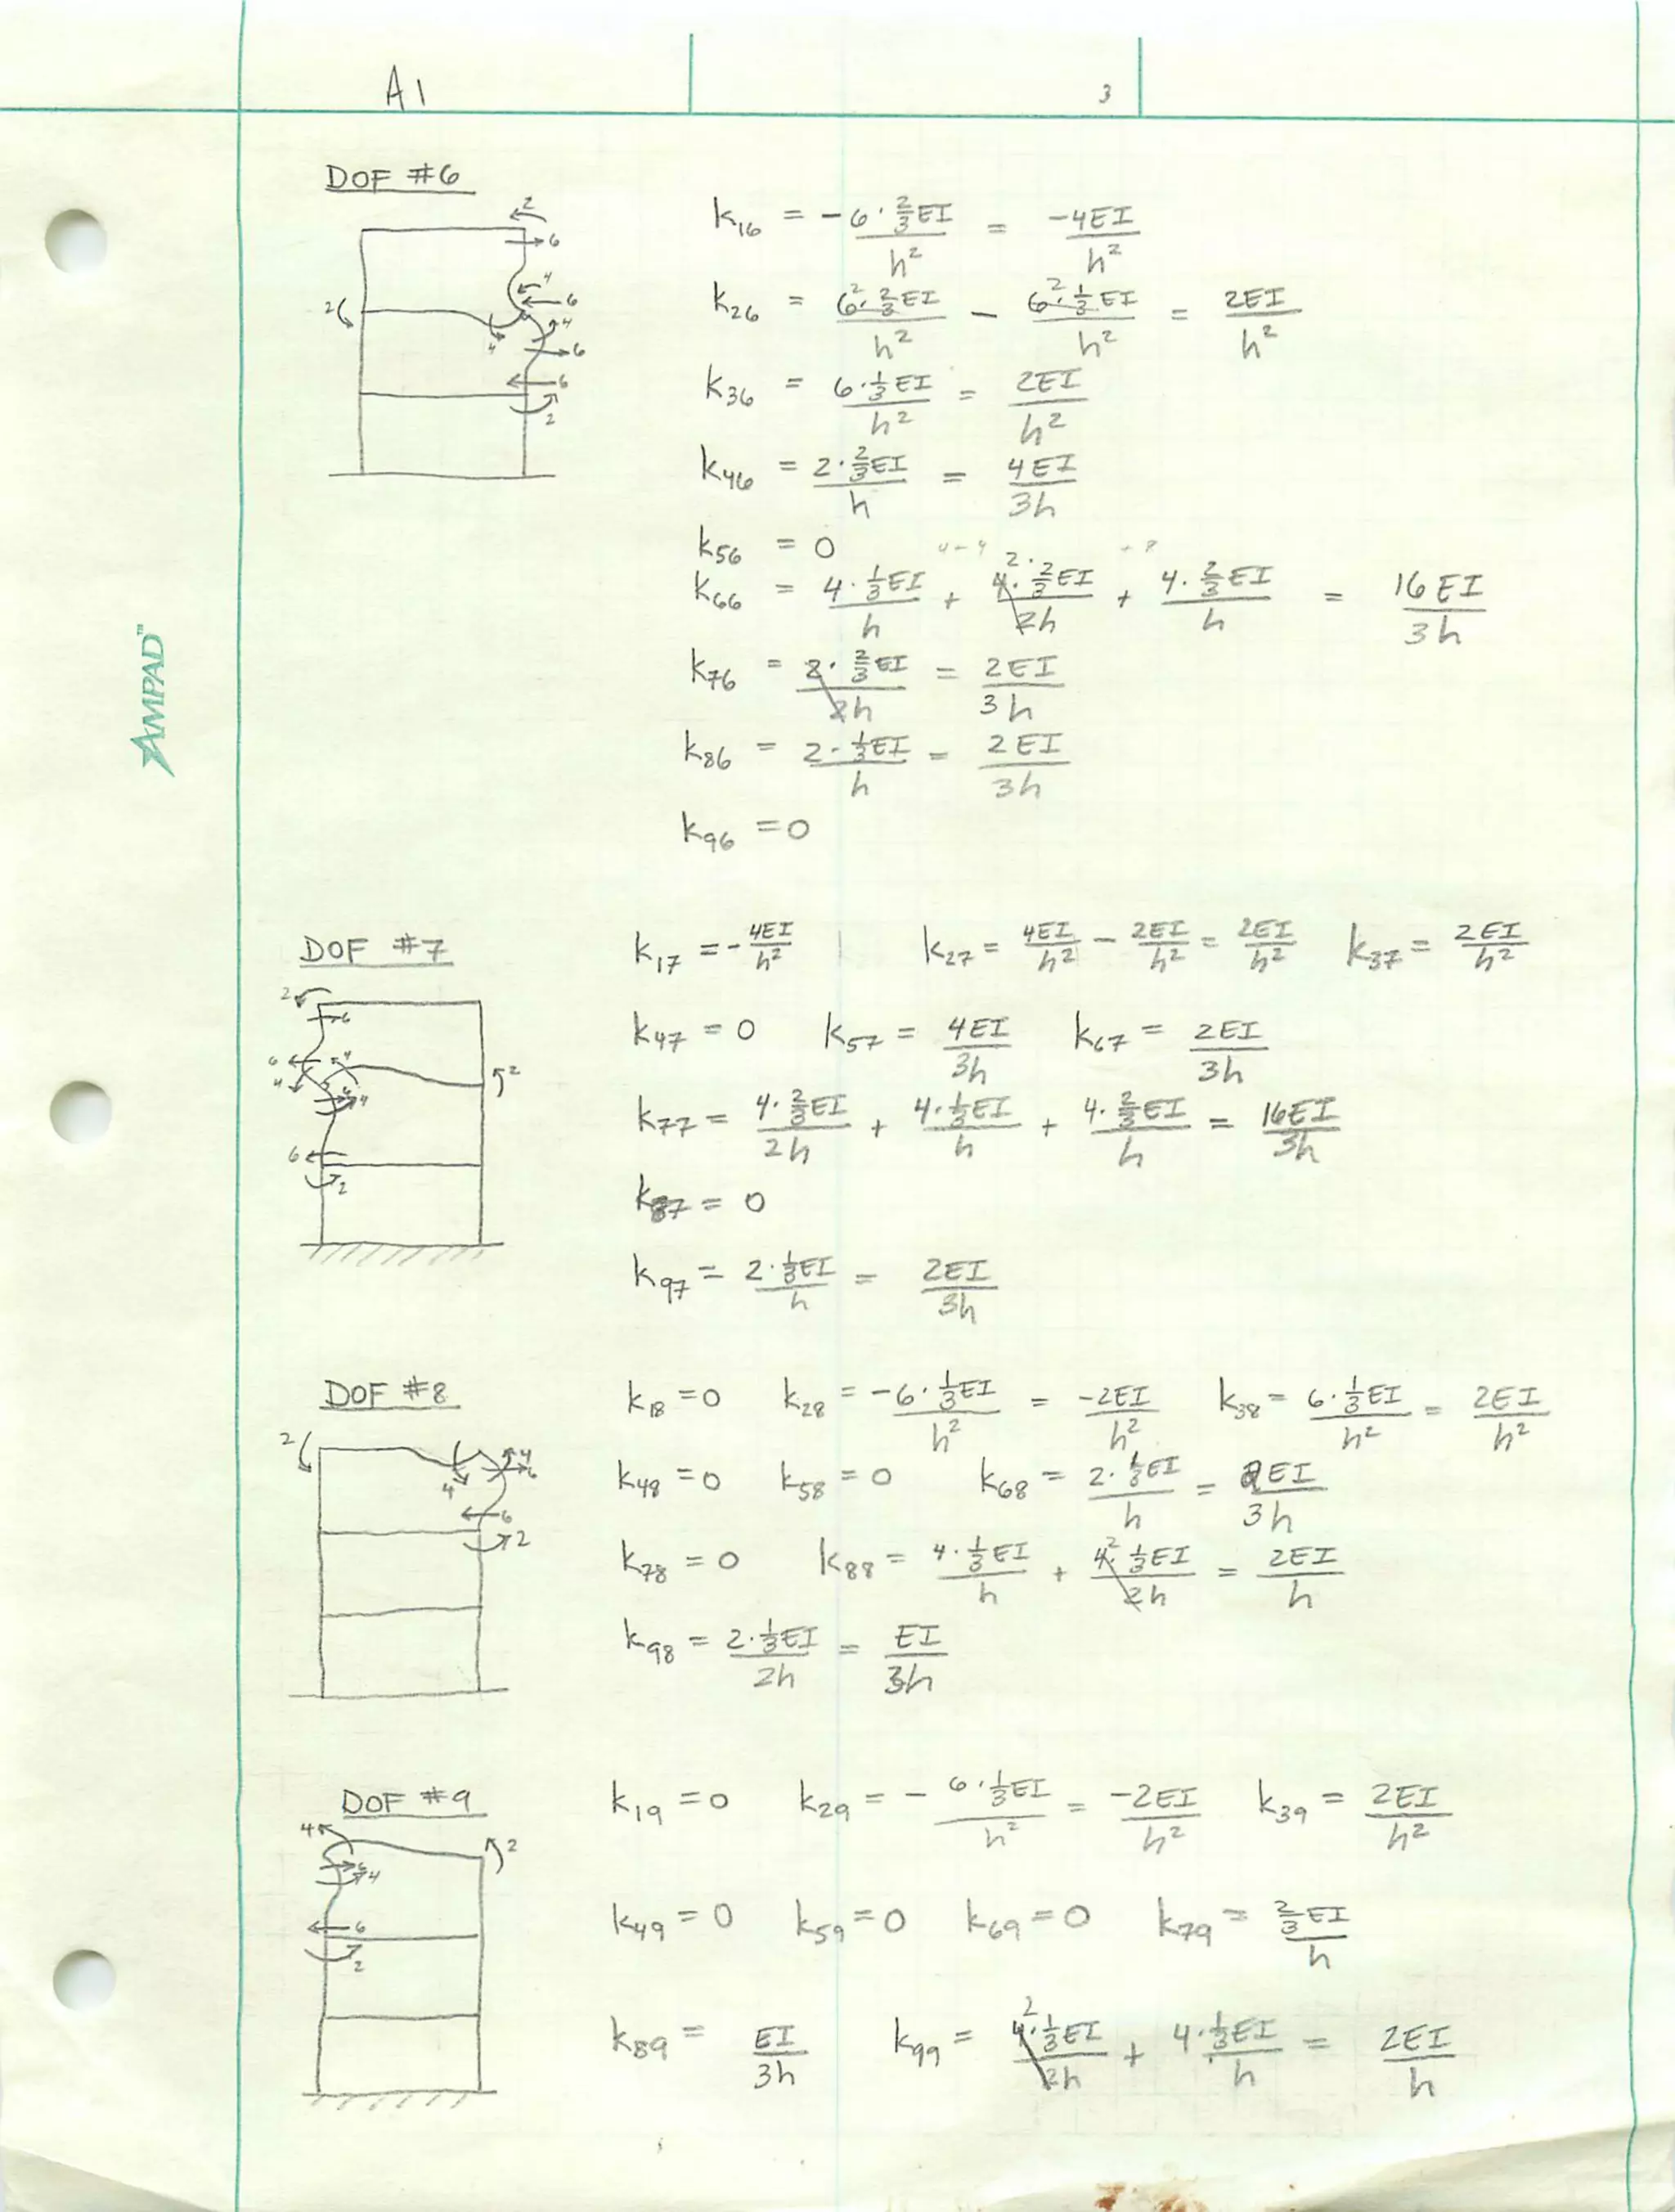 A1
3
DOF #6
k16 = -6·⅔EI/h² = -4EI/h²
k26 = 6·⅔EI/h² - 6·⅓EI/h² = 2EI/h²
k36 = 6·⅓EI/h² = 2EI/h²
k46 = 2·⅔EI/h = 4EI/3h
k56 = 0
k66 = 4·⅓EI/h + 4·⅔EI/2h + 4·⅔EI/h = 16EI/3h
k76 = 2·⅔EI/2h = 2EI/3h
k86 = 2·⅓EI/h = 2EI/3h
k96 = 0
2
6
4
6
2
4
4
6
6
2
AMPAD™
DOF #7
k17 = -4EI/h² k27 = 4EI/h² - 2EI/h² = 2EI/h² k37 = 2EI/h²
k47 = 0 k57 = 4EI/3h k67 = 2EI/3h
k77 = 4·⅔EI/2h + 4·⅓EI/h + 4·⅔EI/h = 16EI/3h
k87 = 0
k97 = 2·⅓EI/h = 2EI/3h
2
6
6
4
2
4
6
4
6
2
DOF #8
k18 = 0 k28 = -6·⅓EI/h² = -2EI/h² k38 = 6·⅓EI/h² = 2EI/h²
k48 = 0 k58 = 0 k68 = 2·⅓EI/h = 2EI/3h
k78 = 0 k88 = 4·⅓EI/h + 4·⅓EI/2h = 2EI/h
k98 = 2·⅓EI/2h = EI/3h
2
4
6
4
6
2
DOF #9
k19 = 0 k29 = -6·⅓EI/h² = -2EI/h² k39 = 2EI/h²
k49 = 0 k59 = 0 k69 = 0 k79 = ⅔EI/h
k89 = EI/3h k99 = 4·⅓EI/2h + 4·⅓EI/h = 2EI/h
4
2
6
4
6
2